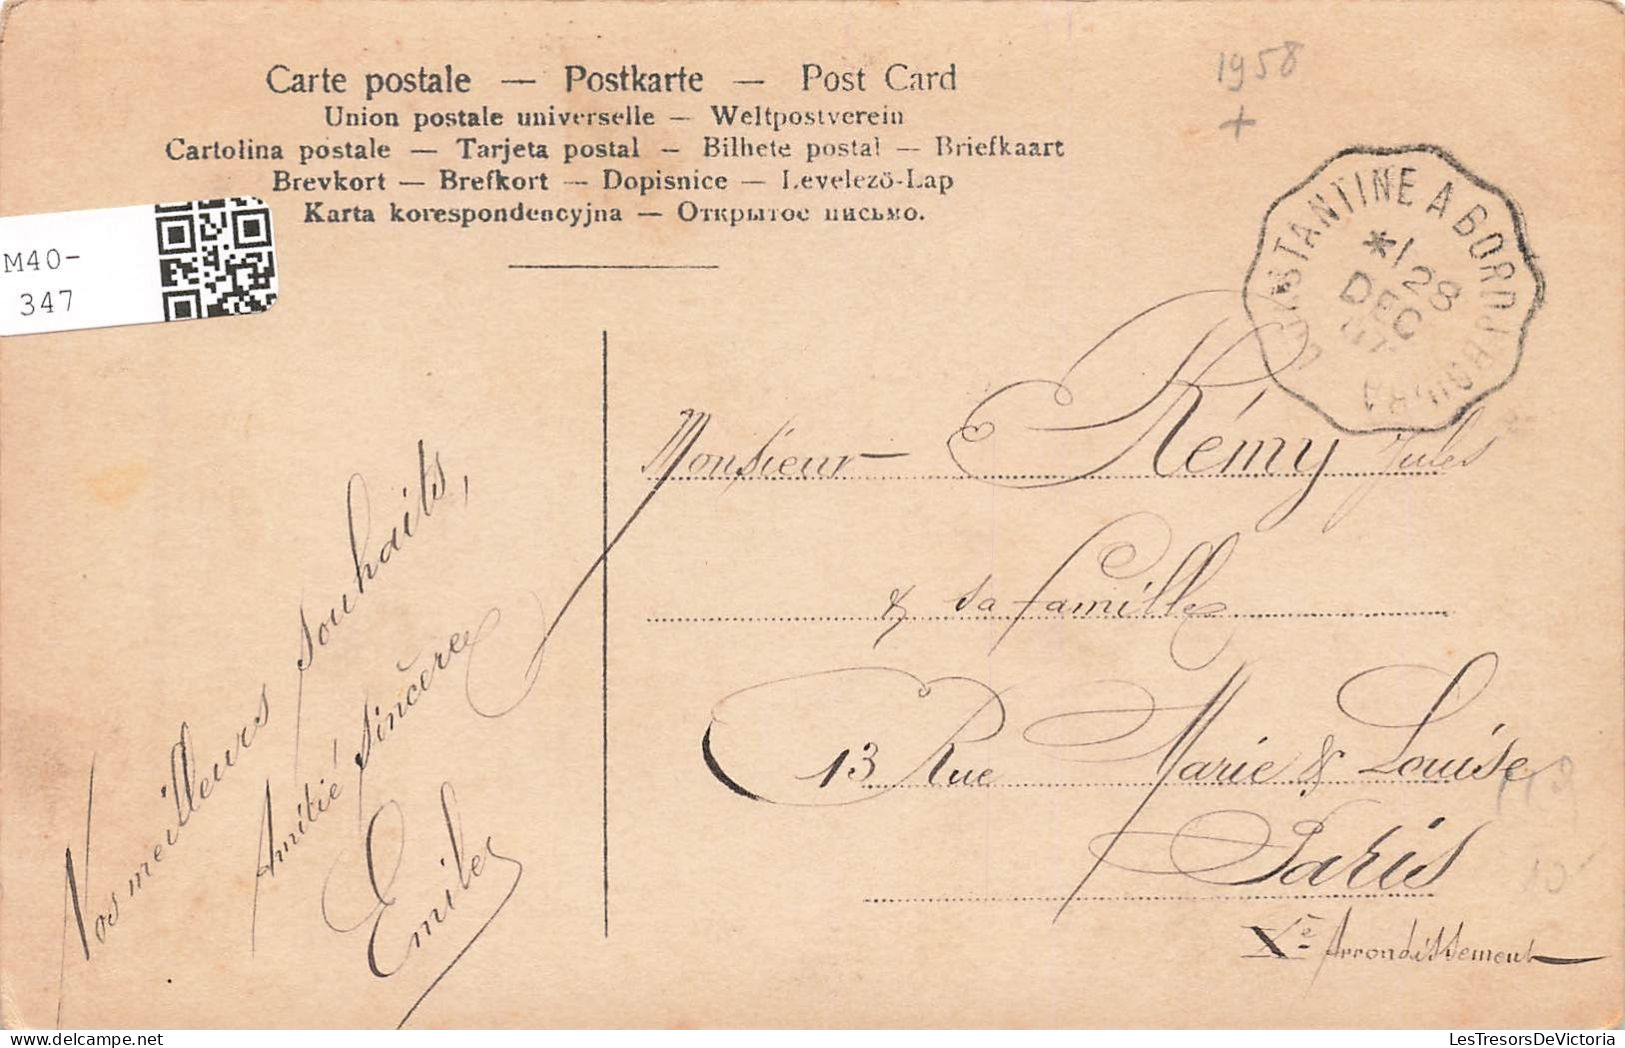 Carte postale — Postkarte — Post Card
Union postale universelle — Weltpostverein
Cartolina postale — Tarjeta postal — Bilhete postal — Briefkaart
Brevkort — Brefkort — Dopisnice — Levelező-Lap
Karta korespondencyjna — Открытое письмо.
1958
+
M40-
347
CONSTANTINE A BORDJ BOUIRA
*1
28
DEC
Monsieur Rémy Jules
& sa famille
13 Rue Marie & Louise
Paris
Xe Arrondissement
Nos meilleurs souhaits,
Amitié sincère
Emile
10
LesTresorsDeVictoria